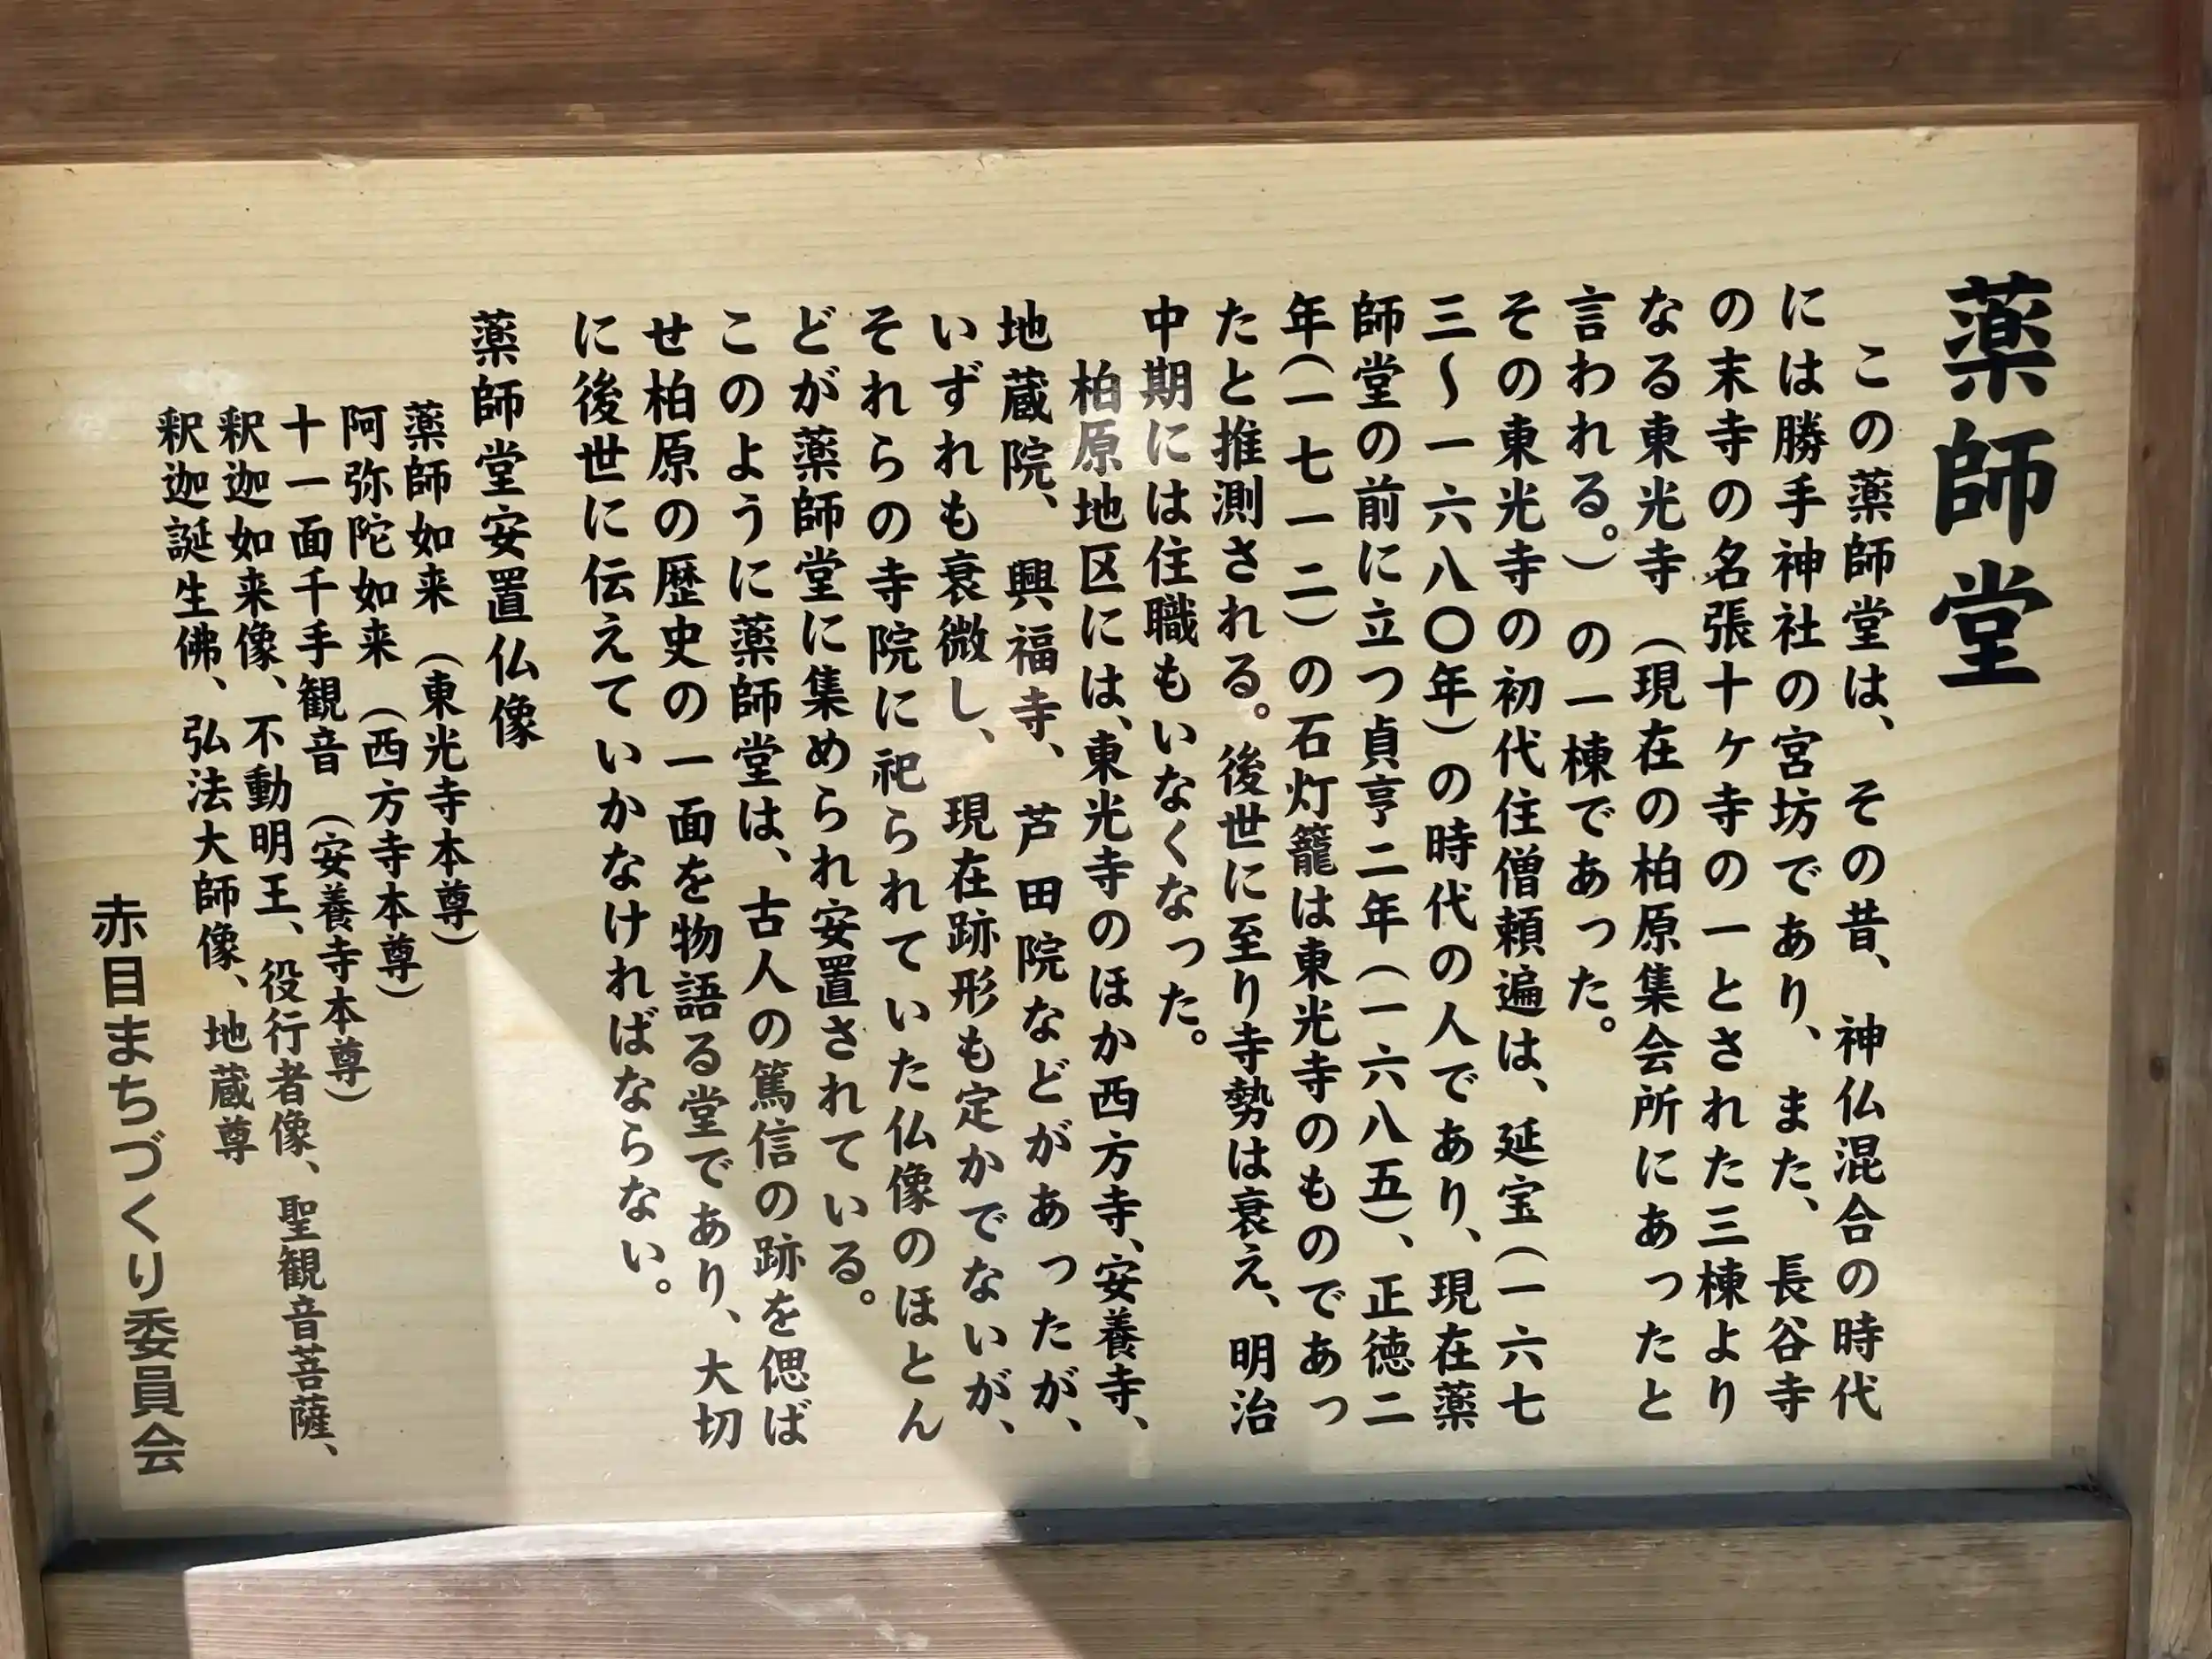 薬師堂
この薬師堂は、その昔、神仏混合の時代
には勝手神社の宮坊であり、また、長谷寺
の末寺の名張十ヶ寺の一とされた三棟より
なる東光寺（現在の柏原集会所にあったと
言われる。）の一棟であった。
その東光寺の初代住僧頼遍は、延宝（一六七
三～一六八〇年）の時代の人であり、現在薬
師堂の前に立つ貞亨二年（一六八五）、正徳二
年（一七一二）の石灯籠は東光寺のものであっ
たと推測される。後世に至り寺勢は衰え、明治
中期には住職もいなくなった。
柏原地区には、東光寺のほか西方寺、安養寺、
地蔵院、興福寺、芦田院などがあったが、
いずれも衰微し、現在跡形も定かでないが、
それらの寺院に祀られていた仏像のほとん
どが薬師堂に集められ安置されている。
このように薬師堂は、古人の篤信の跡を偲ば
せ柏原の歴史の一面を物語る堂であり、大切
に後世に伝えていかなければならない。
薬師堂安置仏像
薬師如来（東光寺本尊）
阿弥陀如来（西方寺本尊）
十一面千手観音（安養寺本尊）
釈迦如来像、不動明王、役行者像、聖観音菩薩、
釈迦誕生佛、弘法大師像、地蔵尊
赤目まちづくり委員会